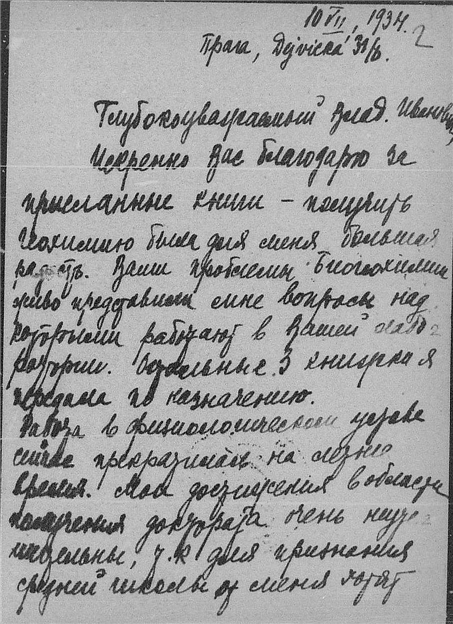 10 VII, 1934. 2
Прага, Dejvická 31/b.
Глубокоуважаемый Влад. Иванович,
Искренно Вас благодарю за
присланные книги – получить
Геохимию была для меня большая
радость. Ваши проблемы Биогеохимии
живо представили мне вопросы над
которыми работают в Вашей лабо-
ратории. Остальные 3 книжки я
передала по назначению.
Работа в физиологическом
сейчас прекратилась на летнее
время. Мои достижения в области
получения доктората очень
, т.к для признания
средней школы от меня хотят